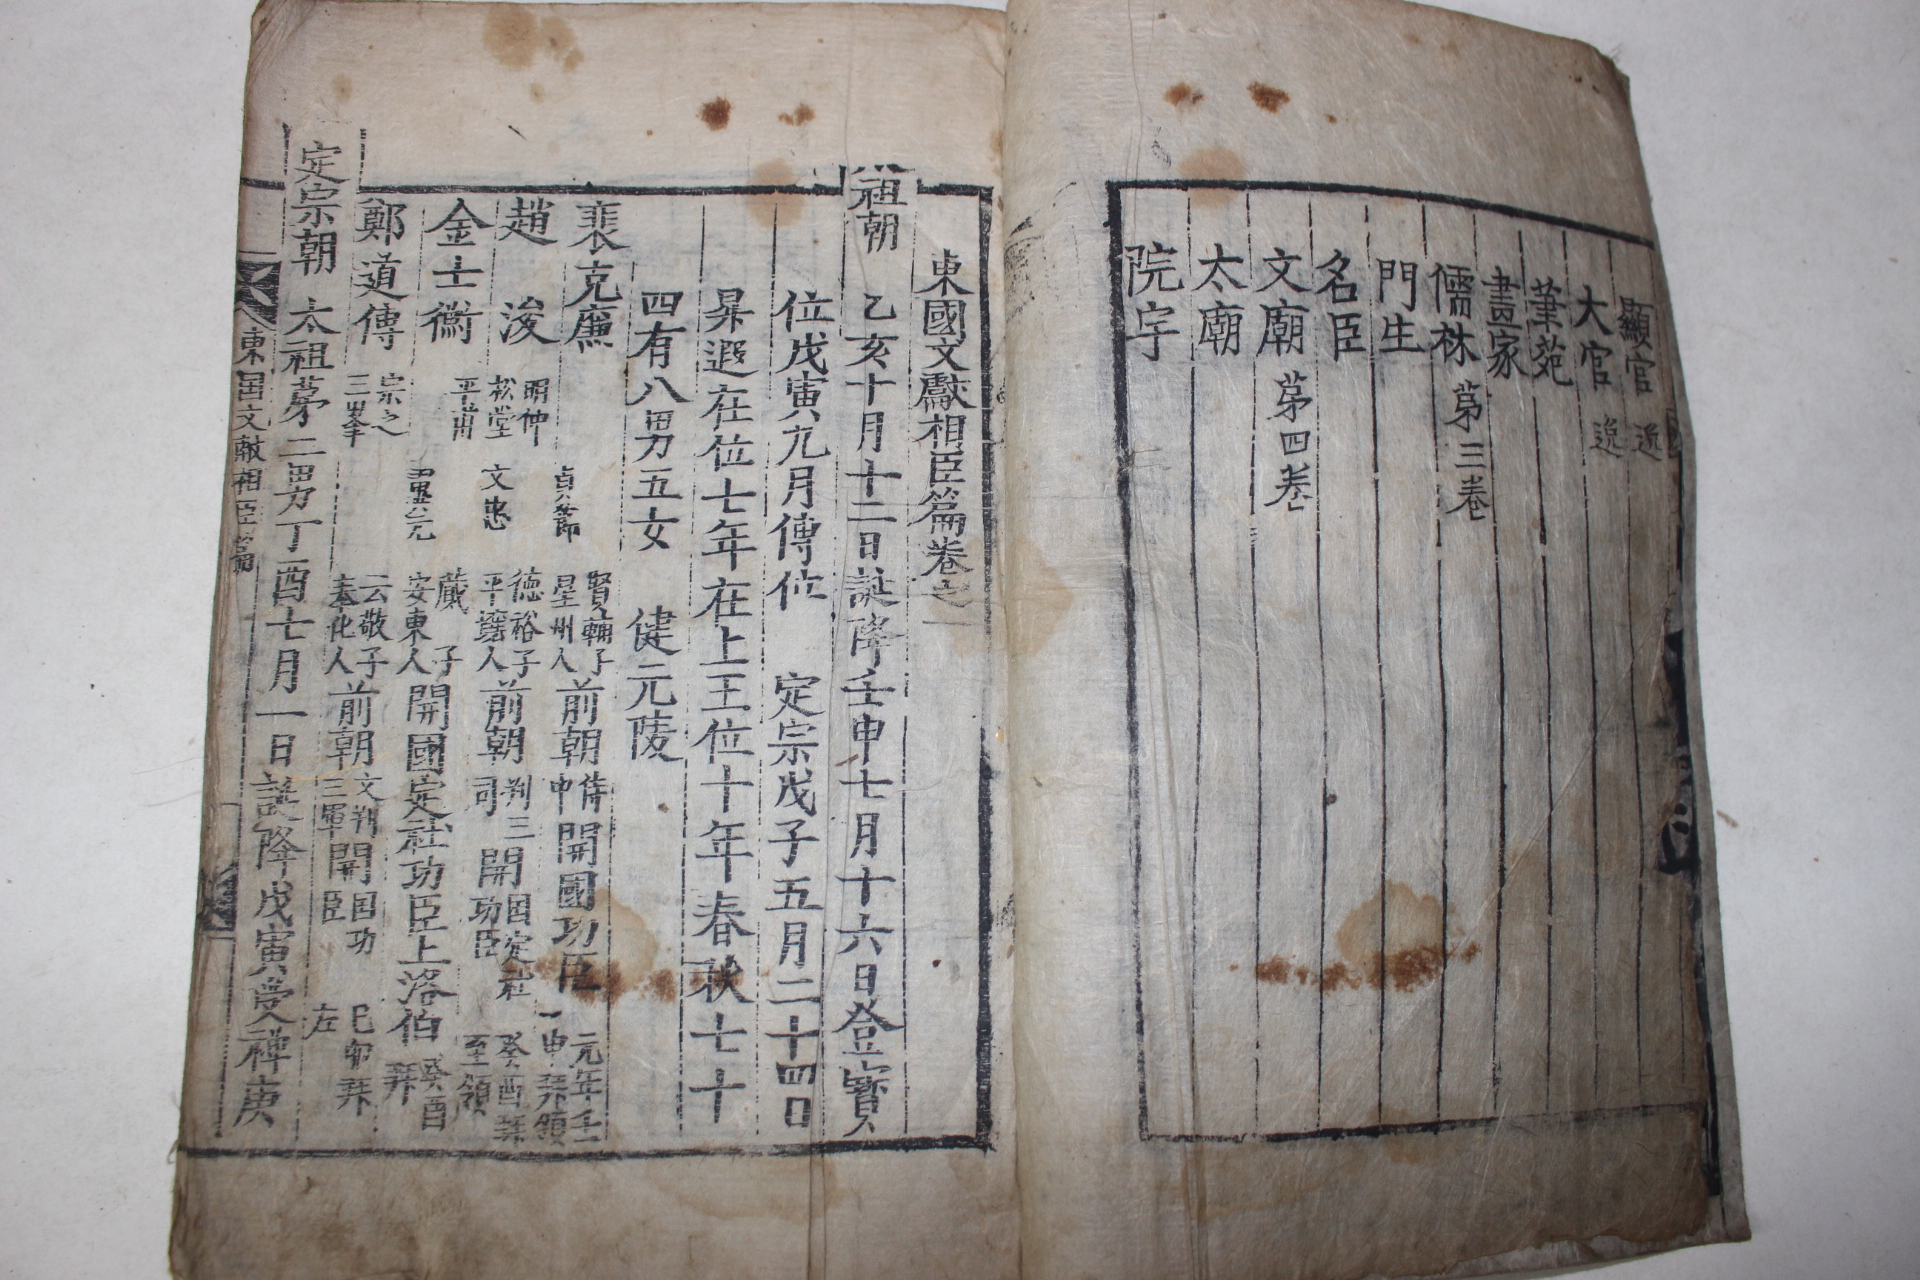 顯官
大官
筆苑
畫家
儒林 第三卷
門生
名臣
文廟 第四卷
太廟
院宇
東國文獻相臣篇卷之一
太祖朝 乙亥十月十二日誕降壬申七月十六日登寶
位戊寅九月傳位 定宗戊子五月二十四日
昇遐在位七年在上王位十年春秋七十
四有八男五女 健元陵
裵克廉 貞節 賢輔子 星州人 前朝 侍中 開國功臣 元年壬申拜領
趙 浚 明仲 松堂 文忠 德裕子 平壤人 前朝 判三司 開國定社功臣 癸酉拜 至領
金士衡 平甫 翼元 蕆子 安東人 開國定社功臣上洛伯 癸酉拜
鄭道傳 宗之 三峯 云敬子 奉化人 前朝 文判三軍 開國功臣 己卯拜左
定宗朝 太祖第二男丁酉七月一日誕降戊寅受禪庚
東国文献相臣篇